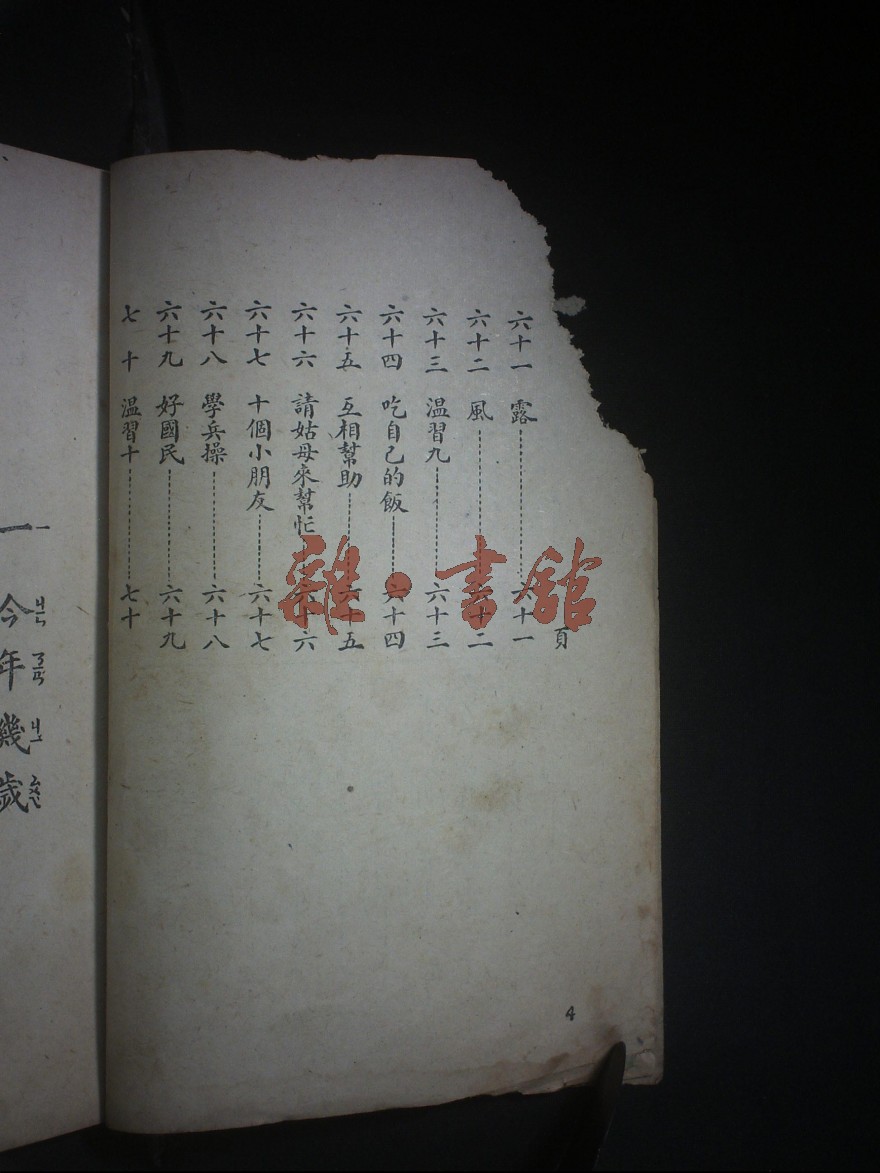 頁
六十一 露 六十一
六十二 風 六十二
六十三 温習九 六十三
六十四 吃自己的飯 六十四
六十五 互相幫助 六十五
六十六 請姑母來幫忙 六十六
六十七 十個小朋友 六十七
六十八 學兵操 六十八
六十九 好國民 六十九
七十 温習十 七十
4
一 今年幾歲
ㄐㄧㄣ ㄋㄧㄢ ㄐㄧ ㄙㄨㄟ
雜·書舘